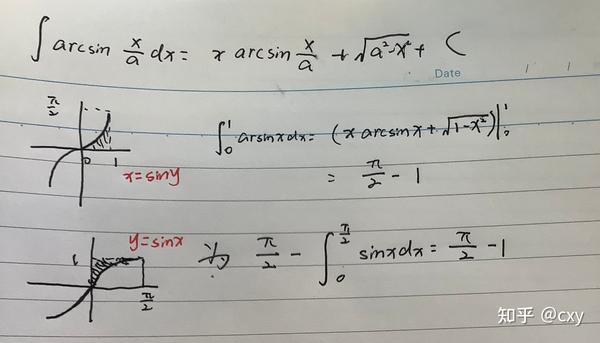 ∫ arcsin x/a dx = x arcsin x/a + √(a²-x²) + C
Date
π/2
0 1
x=siny
∫₀¹ arsinxdx = (x arcsinx + √(1-x²))|₀¹
= π/2 - 1
y=sinx
1
π/2
为 π/2 - ∫₀^(π/2) sinxdx = π/2 - 1
知乎 @cxy